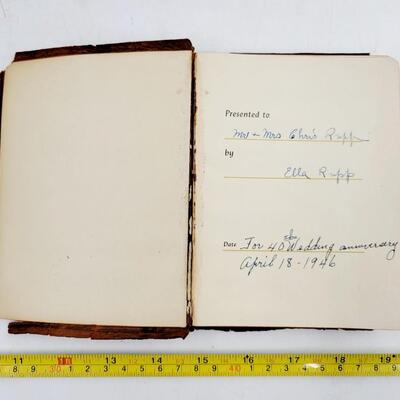 Presented to
Mr + Mrs Chris Rupp
by
Ella Rupp
Date For 40 Wedding anniversary
April 18-1946
11 12 13 14 15 16 17 18 19
30 40